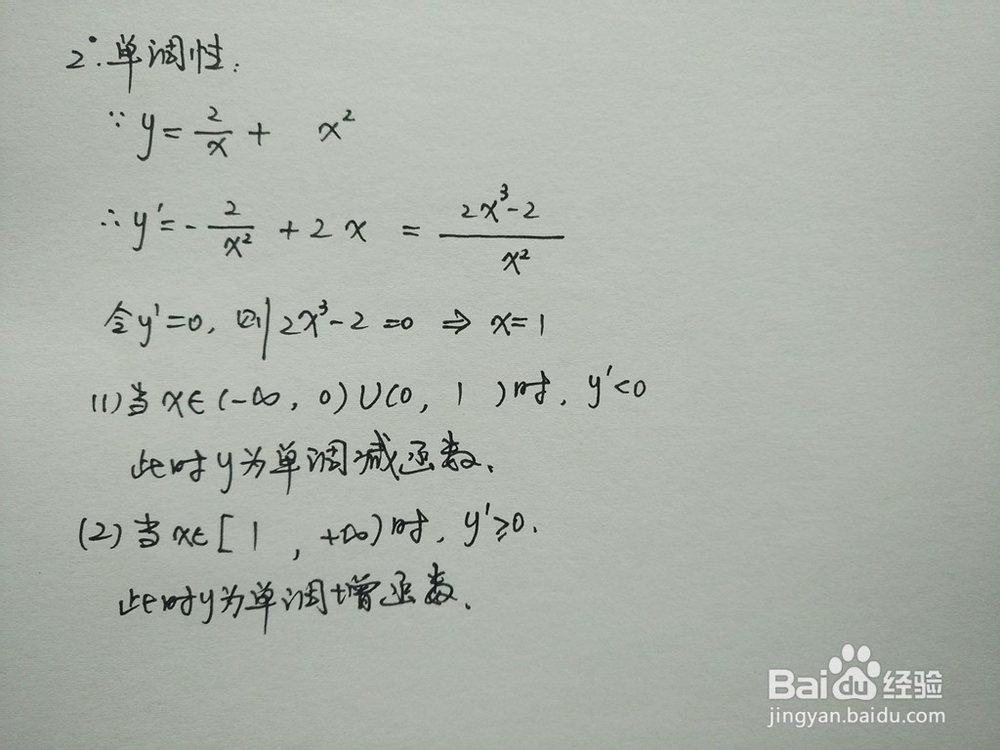 2°. 单调性:
∵ y = 2/x + x²
∴ y' = - 2/x² + 2x = (2x³-2)/x²
令y'=0, 则 2x³-2=0 ⇒ x=1
(1)当x∈(-∞, 0)∪(0, 1 )时, y'<0
此时y为单调减函数.
(2)当x∈[1 , +∞)时, y'≥0.
此时y为单调增函数.
Baidu经验
jingyan.baidu.com